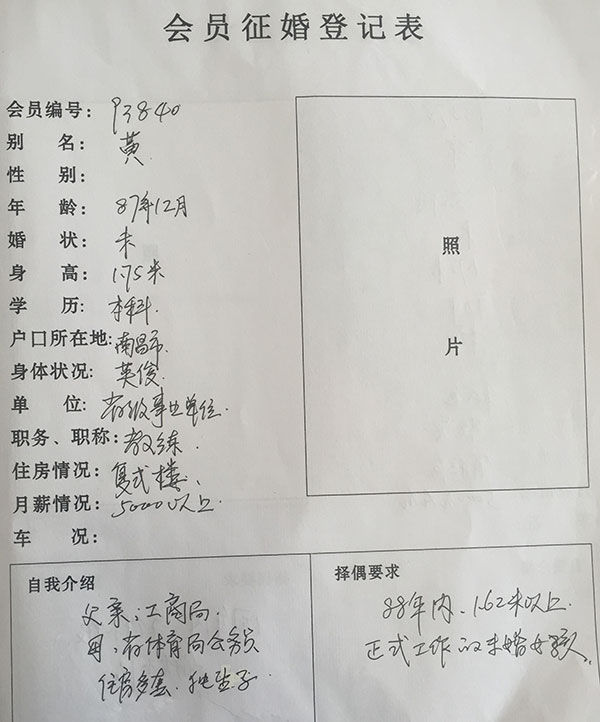 会员征婚登记表
会员编号: 93840
别 名: 黄
性 别:
年 龄: 87年12月
婚 状: 未
身 高: 1.75米
学 历: 本科.
户口所在地: 南昌市.
身体状况: 英俊
单 位: 省级事业单位.
职务、职称: 教练.
住房情况: 复式楼、
月薪情况: 5000以上.
车 况:
照
片
自我介绍
父亲:工商局.
:省体育局公务员
住房多套.独生子
择偶要求
88年内、1.62米以上.
正式工作的未婚女孩.